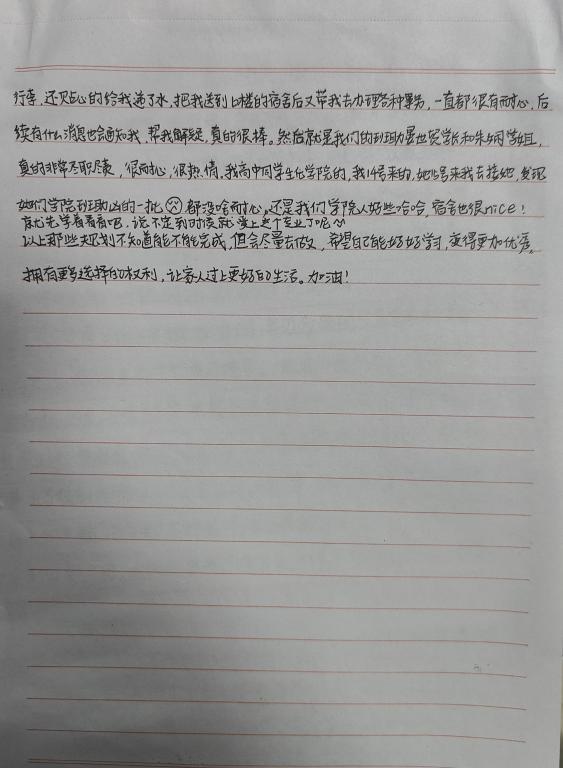 行李,还贴心的给我递了水,把我送到它楼的宿舍后又带我去办理各种事务,一直都很有耐心,后
续有什么消息也会通知我,帮我解疑,真的很棒。然后就是我们的班助晏世贸学长和朱炳学姐,
真的非常尽职尽责,很耐心,很热情,我高中同学生化学院的,我14号来的,她15号来我去接她,发现
她们学院班助凶的一批☹都没啥耐心。还是我们学院人好些哈哈,宿舍也很nice!
就先学着看看吧,说不定到时候就爱上这个专业了呢~
以上那些规划不知道能不能完成,但会尽量去做,希望自己能好好学习,变得更加优秀。
拥有更多选择的权利,让家人过上更好的生活。加油!